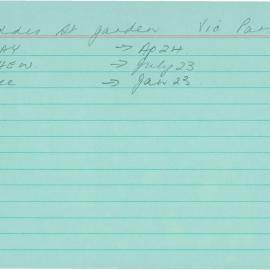 St garden Vic Par
→ Ap 24
HEW → July 23
ee → Jan 23